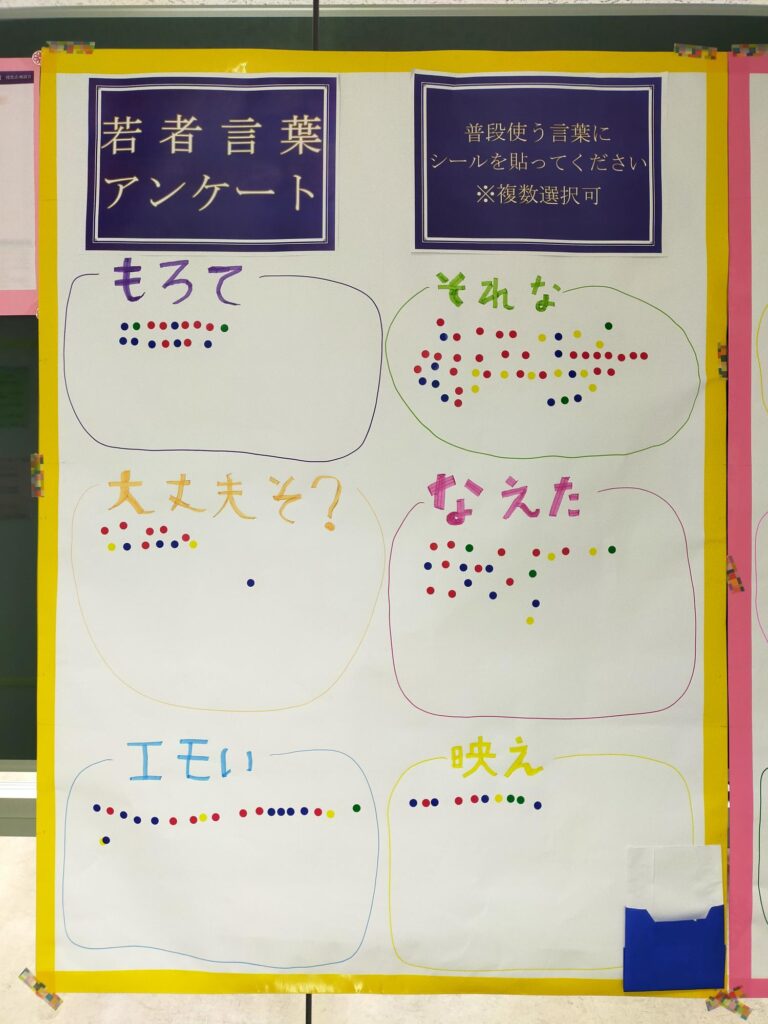 若者言葉
アンケート
普段使う言葉に
シールを貼ってください
※複数選択可
もろて
それな
大丈夫そ?
なえた
エモい
映え